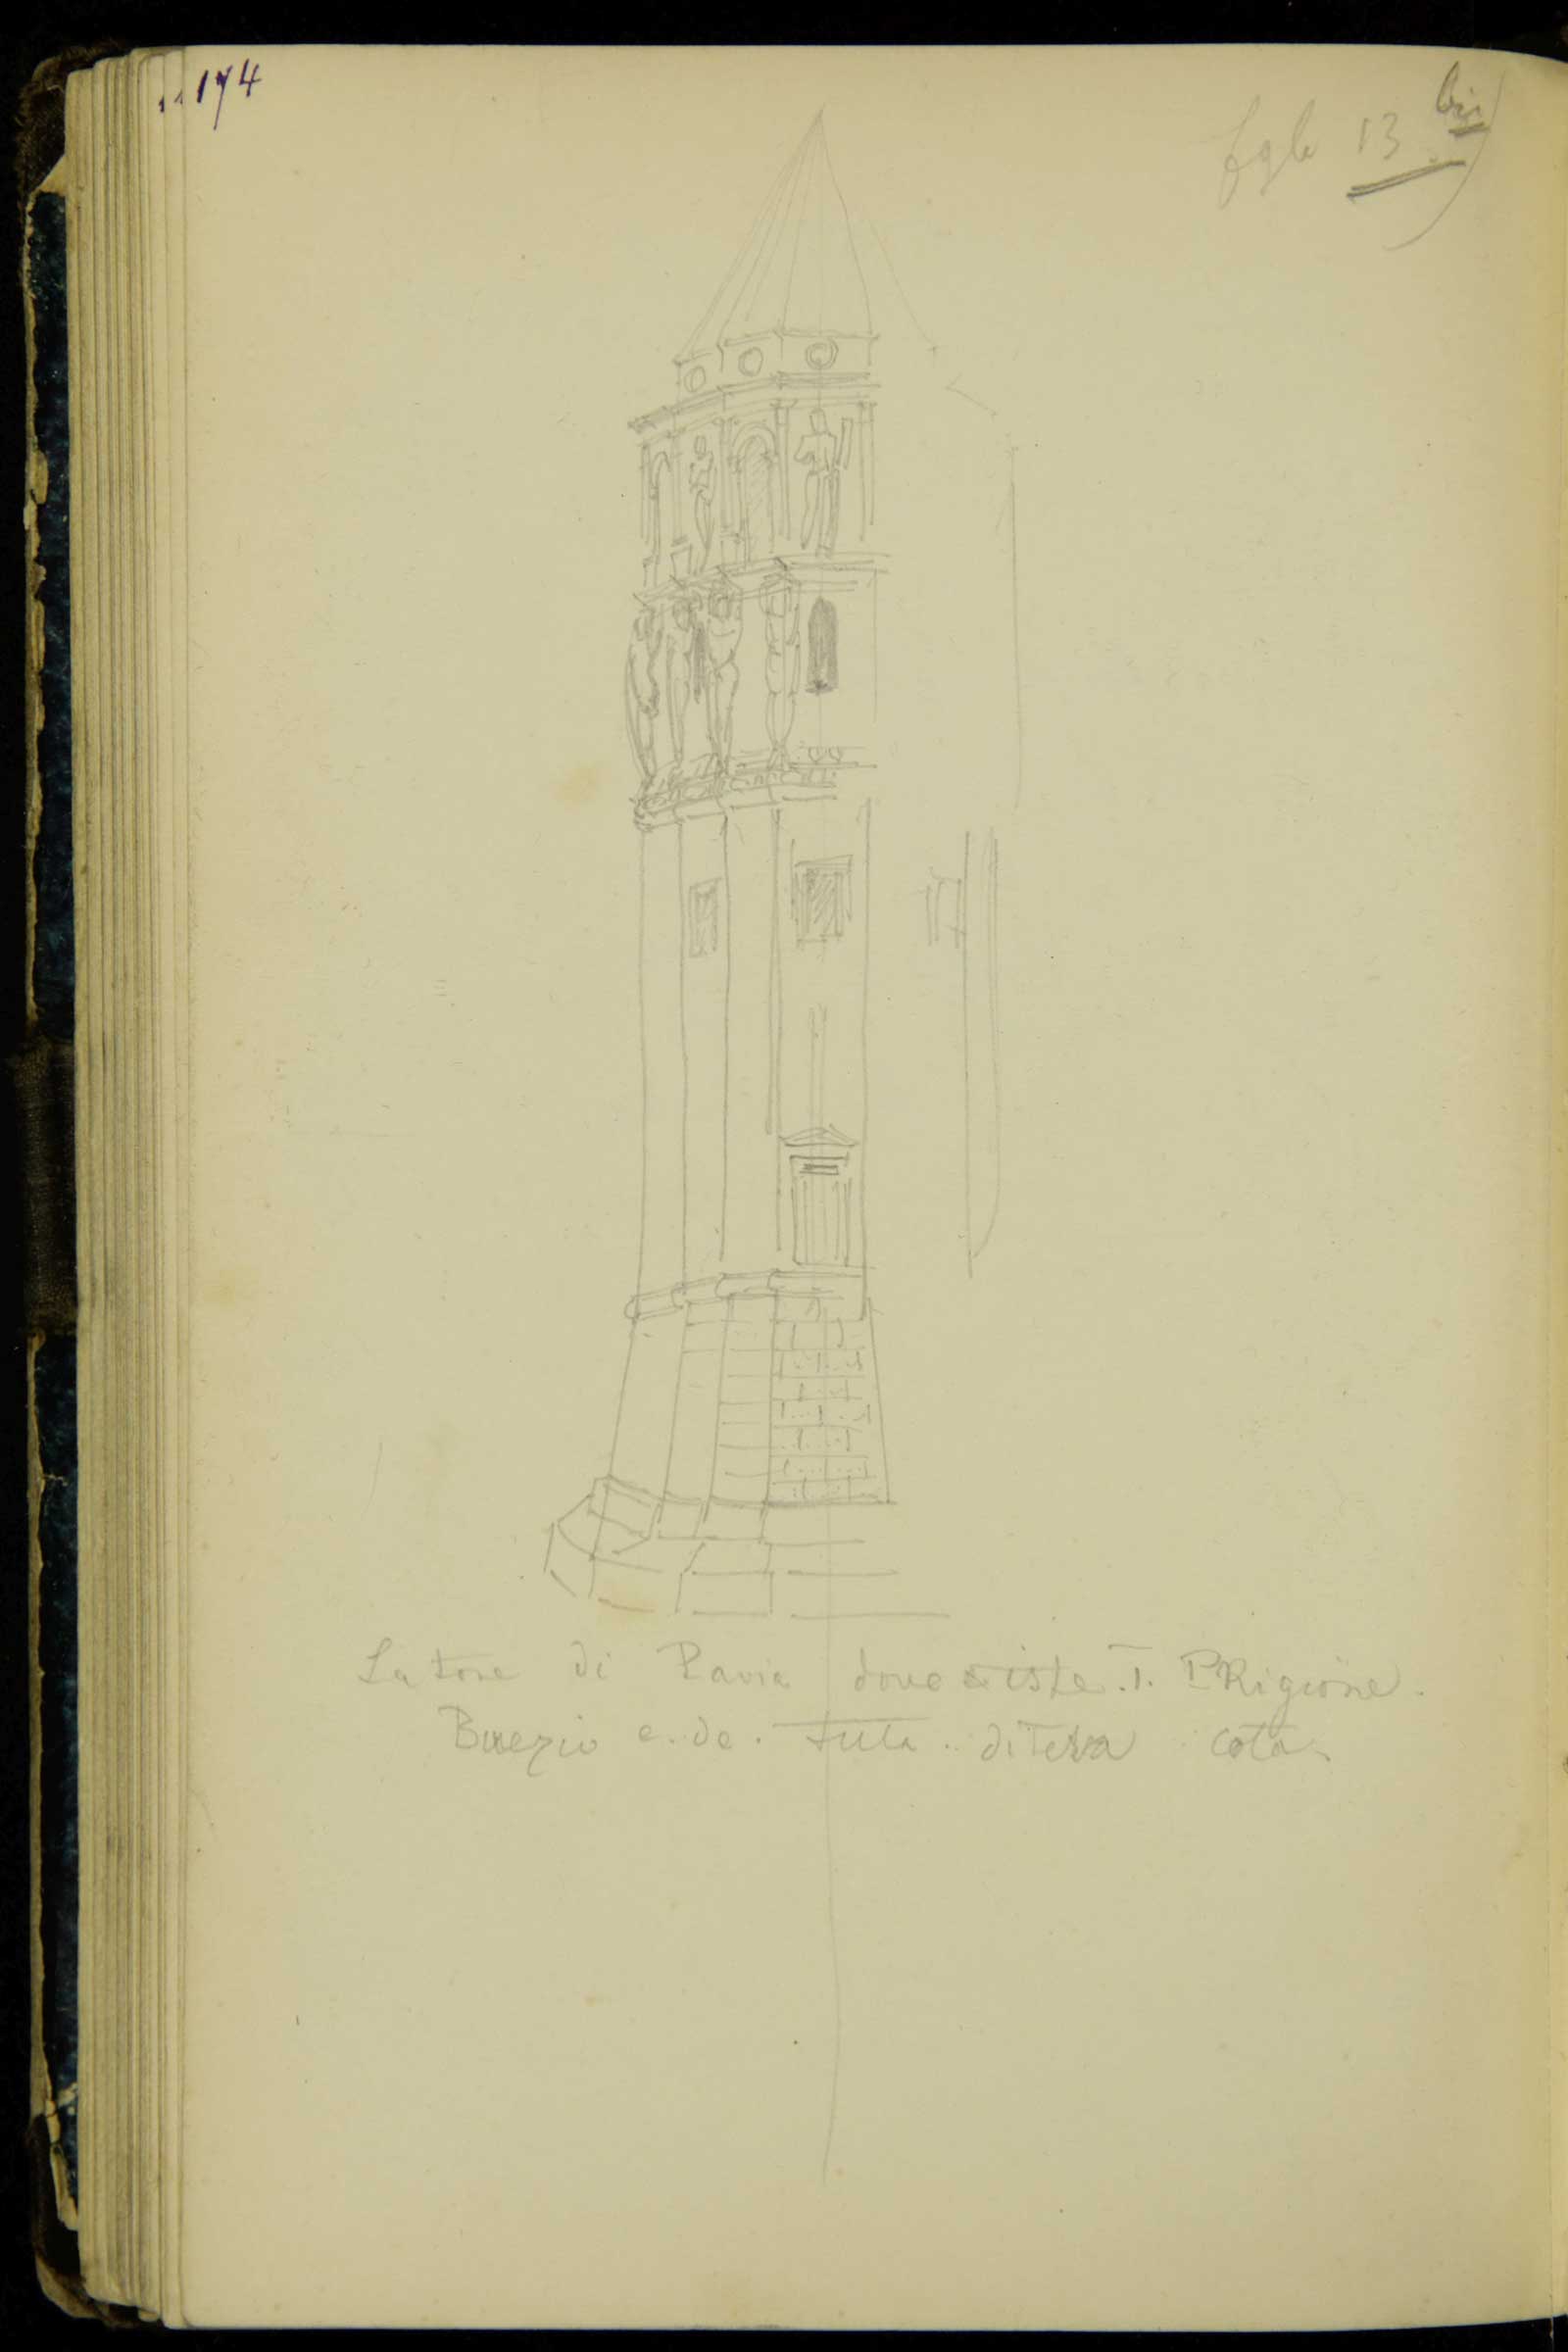 174
fgle 13 bis
La tore di Pavia dove stiste. I. PRigione.
Buezio e. de. tuta .. di Tera cota.